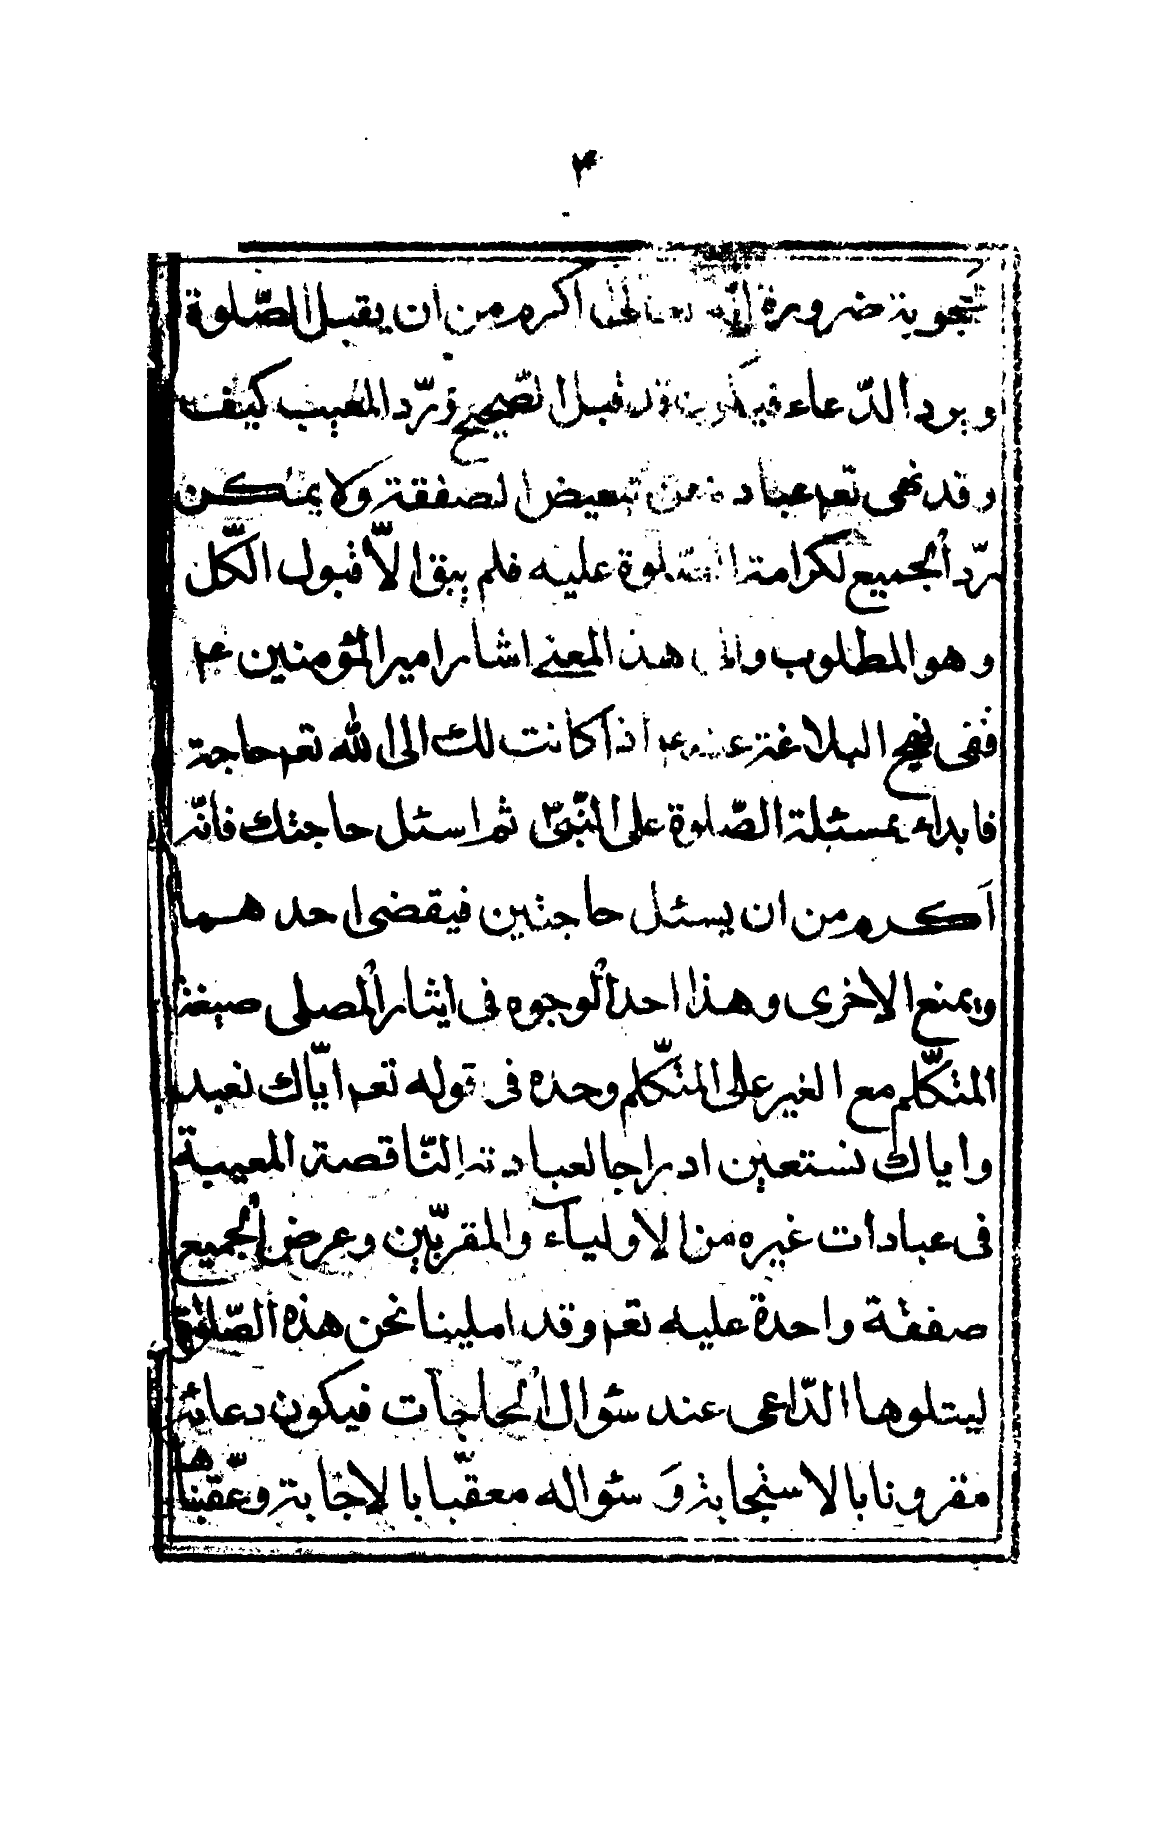 ٣
ضرورة اكرم من ان يقبل الصّلوة
ويرد الدّعاء فيكون قد قبل الصّحيح وَرَّد المعيب كيف
وقد نهى تعم عباده عن تبعيض الصفقة ولا يمكن
رَدّ الْجميع لكرامة الصّلوة عليه فلم يبق الّا قبول الكلّ
وهو المطلوب والى هذ المعنى اشار امير المؤمنين ع
ففى نهج البلاغة عنه ع اذا كانت لك الى الله تعم حاجة
فابداء بمسئلة الصّلوة على النّبىّ ثم اسئل حاجتك فانّه
اَكرم من ان يسئل حاجتين فيقضى احدهما
ويمنع الاخرى وهذا احد الْوجوه فى ايثار الْمصلى صيغة
المتكلّم مع الغير على المتكلّم وحده فى قوله تعم ايّاك نعبد
واياك نستعين ادراجا لعبادته النّاقصة المعيبة
فى عبادات غيره من الاولياء والمقرّبين وعرض الْجميع
صفقة واحدة عليه تعم وقد املينا نحن هذه الصّلوة
ليتلوها الدّاعى عند سؤال الْحاجات فيكون دعائه
مقرونا بالاستجابة وَ سؤاله معقّبا بالاجابة وعقّبناها